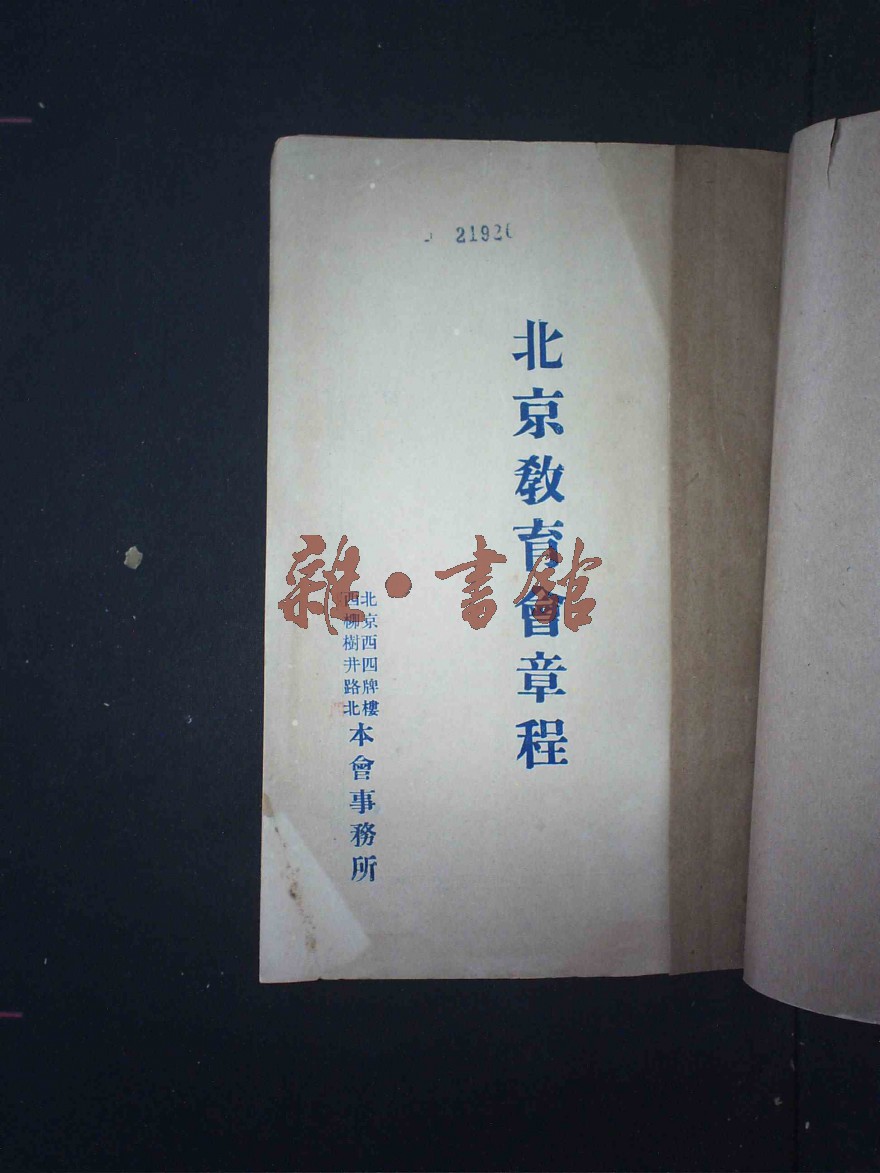 21926
北京教育會章程
北京西四牌樓
西柳樹井路北
本會事務所
雜·書館